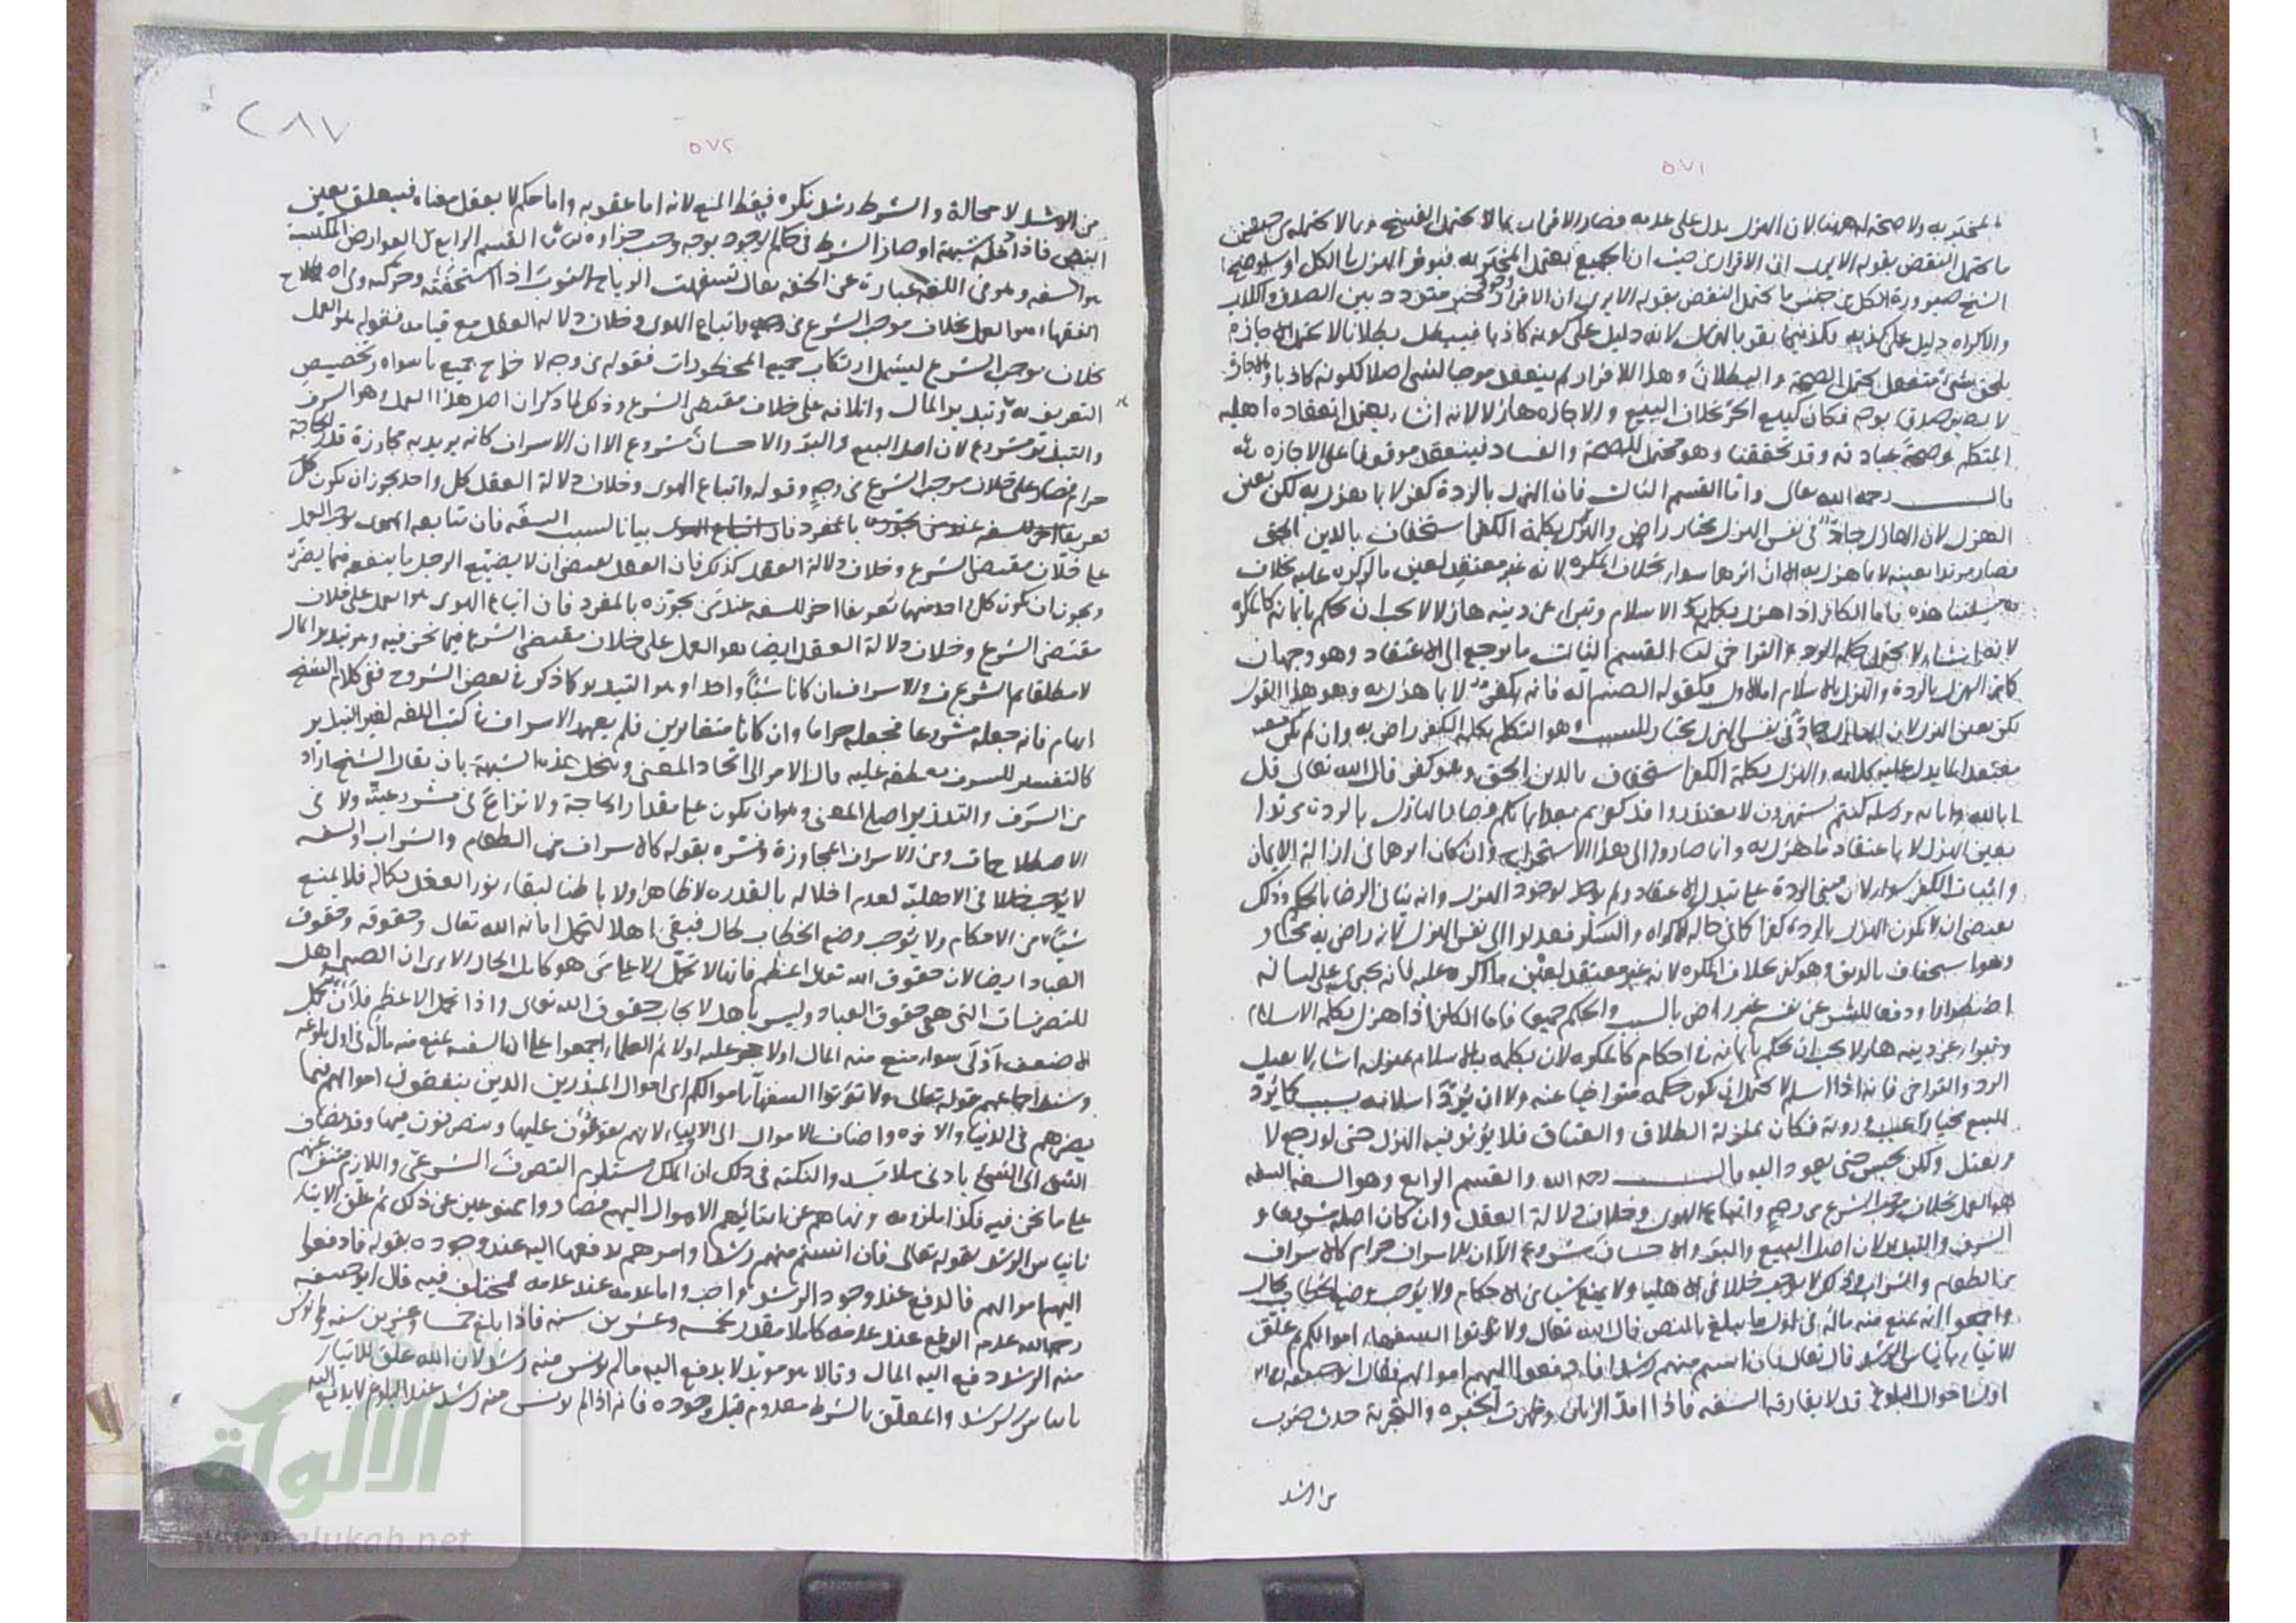 ٥٧١
المخبر به ولا صحة له ههنا لان الهزل يدل على عدمه فصار الاقرار بما لا يحتمل الفسخ وبما لا يحتمله من حيث
ما يحتمل النقض بقوله الا يرى ان الاقرار من حيث ان الجميع يعتمد المخبر به فيؤثر الهزل في الكل
الشيخ صيرورة الكل من جنس ما يحتمل النقض بقوله الا يرى ان الاقرار خبر متردد بين الصدق والكذب
والاكراه دليل على كذبه فكذا فيما يقر بالهزل لانه دليل على كونه كاذبا فيبطل بطلانا لا يحتمل الاجازة
يلحق بشيء منعقد يحتمل الصحة والبطلان وهذا الاقرار لم ينعقد موجبا لشيء اصلا لكونه كاذبا وبالاجازة
لا يصير صدقا بوجه فكان كبيع الحر بخلاف البيع والاجازة هازلا لانه انشاء يعتمد انعقاده اهلية
المتكلم وصحة عبارته وقد تحققتا وهو محتمل للصحة والفساد فينعقد موقوفا على الاجازة
قال رحمه الله تعالى واما القسم الثالث فان الهزل بالردة كفر لا بما هزل به لكن بعين
الهزل لان الهازل جاد في نفس الهزل مختار راض والهزل بكلمة الكفر استخفاف بالدين الحق
فصار مرتدا بعينه لا بما هزل به الا ان اثرهما سواء بخلاف المكره لانه غير معتقد لعين ما اكره عليه بخلاف
مسئلتنا هذه فاما الكافر اذا هزل بكلمة الاسلام وتبرا عن دينه هازلا يجب ان يحكم بايمانه كالمكره
لانه انشاء لا يحتمل حكمه الرد والتراخي القسم الثالث ما يرجع الى الاعتقاد وهو وجهان
كاتم الهزل بالردة والهزل بالاسلام اما الاول فكقوله الصنم اله فانه يكفر لا بما هزل به وهو هذا القول
لكن بعين الهزل لان الهازل جاد في نفس الهزل مختار للسبب وهو التكلم بكلمة الكفر راض به وان لم يكن
معتقدا لما يدل عليه كلامه والهزل بكلمة الكفر استخفاف بالدين الحق وهو كفر قال الله تعالى قل
ابالله واياته ورسوله كنتم تستهزؤن لا تعتذروا قد كفرتم بعد ايمانكم فصار الهازل بالردة مرتدا
بعين الهزل لا باعتقاد ما هزل به وانما صاروا الى هذا الاستخراج وان كان اثرهما في ازالة الايمان
واثبات الكفر سواء لان مبنى الردة على تبدل الاعتقاد ولم يوجد لوجود الهزل وانه ينافي الرضا بالحكم وذلك
يقتضي ان لا يكون الهزل بالردة كفرا كما في حالة الاكراه والسكر فعدلوا الى نفس الهزل لانه راض به مختار
وهو استخفاف بالدين وهو كفر بخلاف المكره لانه غير معتقد لعين ما اكره عليه فانه يجري على لسانه
اضطرارا ودفعا للشر عن نفسه غير راض بالسبب والحكم جميعا فاما الكافر اذا هزل بكلمة الاسلام
وتبرا عن دينه هازلا يجب ان يحكم بايمانه في احكام كالمكره لان تكلمه بالاسلام بمنزلة انشاء لا يقبل
الرد والتراخي فانه اذا اسلم لا يحتمل ان يكون حكمه متراخيا عنه ولا ان يرد اسلامه بسبب كما يرد
المبيع بخيار العيب والرؤية فكان بمنزلة الطلاق والعتاق فلا يؤثر فيه الهزل حتى لو رجع لا
يقتل ولكن يحبس حتى يعود اليه قال رحمه الله والقسم الرابع وهو السفه السفه
هو العمل بخلاف موجب الشرع من وجه واتباع الهوى وخلاف دلالة العقل وان كان اصله مشروعا وهو
السرف والتبذير لان اصل البيع والبر والاحسان مشروع الا ان الاسراف حرام كالاسراف
في الطعام والشراب وذلك لا يوجب خللا في الاهلية ولا يمنع شيئا من الاحكام ولا يوجب وضع الخطاب بحال
واجمعوا انه يمنع منه ماله في اول ما يبلغ بالنص قال الله تعالى ولا تؤتوا السفهاء اموالكم ثم علق
الايتاء بايناس الرشد فقال تعالى فان انستم منهم رشدا فادفعوا اليهم اموالهم فقال ابو حنيفة
اول احوال البلوغ قد لا يفارقه السفه فاذا امتد الزمان وظهرت الخبرة والتجربة حدث ضرب
من الرشد
٢٨٧
٥٧٢
من الرشد لا محالة والشرط رشد نكرة فسقط المنع لانه اما عقوبة واما حكم لا يعقل معناه فيتعلق بعين
النص فاذا دخله شبهة او صار الشرط في حكم الوجود بوجه وجب جزاؤه القسم الرابع من العوارض المكتسبة
هو السفه وهو في اللغة عبارة عن الخفة يقال تسفهت الرياح الثوب اذا استخفته وحركته وفي اصطلاح
الفقهاء هو العمل بخلاف موجب الشرع من وجه واتباع الهوى وخلاف دلالة العقل مع قيامه فقوله هو العمل
بخلاف موجب الشرع ليشمل ارتكاب جميع المحظورات فقوله من وجه لاخراج جميع ما سواه وتخصيص
التعريف به وتبذير المال واتلافه على خلاف مقتضى الشرع وذلك لما ذكر ان اصل هذا العمل وهو السرف
والتبذير مشروع لان اصل البيع والبر والاحسان مشروع الا ان الاسراف كانه يريد به مجاوزة قدر الحاجة
حرام فصار على خلاف موجب الشرع من وجه وقوله واتباع الهوى وخلاف دلالة العقل كل واحد يجوز ان يكون كل
تعريفا اخر للسفه عند من يجوزه بالمفرد بيانا لسبب السفه فان متابعة الهوى يوجب العمل
على خلاف مقتضى الشرع وخلاف دلالة العقل كذلك فان العقل يقتضي ان لا يضيع الرجل ما ينفعه فيما يضره
ويجوز ان يكون كل واحد منهما تعريفا اخر للسفه عند من يجوزه بالمفرد فان اتباع الهوى هو العمل على خلاف
مقتضى الشرع وخلاف دلالة العقل ايضا هو العمل على خلاف مقتضى الشرع فيما نحن فيه وهو تبذير المال
لا مطلقا ثم الشرع في والاسراف ان كانا شيئا واحدا وهو التبذير كما ذكر في بعض الشروح ففي كلام الشيخ
ابهام فانه جعله مشروعا فجعله حراما وان كانا متغايرين فلم يعهد الاسراف في كتب اللغة لغير التبذير
كالتفسير للسرف بعطفه عليه مال الامر الى اتحاد المعنى وينحل هذه الشبهة بان يقال الشيخ اراد
من السرف والتبذير اصل المعنى وهو ان يكون على مقدار الحاجة ولا نزاع في مشروعيته ولا في
الاصطلاحات ومن الاسراف المجاوزة وفسره بقوله كالاسراف في الطعام والشراب والسفه
لا يوجب خللا في الاهلية لعدم اخلاله بالقدرة لا ظاهرا ولا باطنا لبقاء نور العقل بكماله فلا يمنع
شيئا من الاحكام ولا يوجب وضع الخطاب بحال فيبقى اهلا لتحمل امانة الله تعالى وحقوقه وحقوق
العباد ايضا لان حقوق الله تعالى اعظم فانها لا تحمل الا على من هو كامل الحال الا يرى ان الصبي اهل
للتصرفات التي هي حقوق العباد وليس باهل لايجاب حقوق الله تعالى واذا تحمل الاعظم فلان يتحمل
الاضعف اولى سواء منع منه المال اولا حجر عليه اولا ثم العلماء اجمعوا على ان السفيه يمنع منه ماله في اول بلوغه
وسند اجماعهم قوله تعالى ولا تؤتوا السفهاء اموالكم اي اموال المبذرين الذين ينفقون اموالهم فيما
يضرهم في الدنيا والاخرة واضاف الاموال الى الاولياء لانهم يقومون عليها ويتصرفون فيها وقد يضاف
الشيء الى الشيء بادنى ملابسة والنكتة في ذلك ان الملك مستلزم التصرف الشرعي واللازم منتف عنهم
على ما نحن فيه فكذا ملزومه ونهاهم عن ايتائهم الاموال اليهم فصاروا ممنوعين عن ذلك ثم علق الايتاء
ثانيا بايناس الرشد بقوله تعالى فان انستم منهم رشدا وامرهم بدفعها اليه عند وجوده بقوله فادفعوا
اليهم اموالهم فالدفع عند وجود الرشد واجب واما عدمه عند عدمه فمختلف فيه قال ابو حنيفة
رحمه الله عدم الدفع عند عدمه كاملا مقدر بخمسة وعشرين سنة فاذا بلغ خمسا وعشرين سنة ولم يؤنس
منه الرشد دفع اليه المال وقالا هو مؤبد لا يدفع اليه مالم يؤنس منه رشد لان الله علق الايتاء
بايناس الرشد والمعلق بالشرط معدوم قبل وجوده فانه اذا لم يؤنس منه رشد عند البلوغ لا يدفع اليه
الألوكة
www.alukah.net